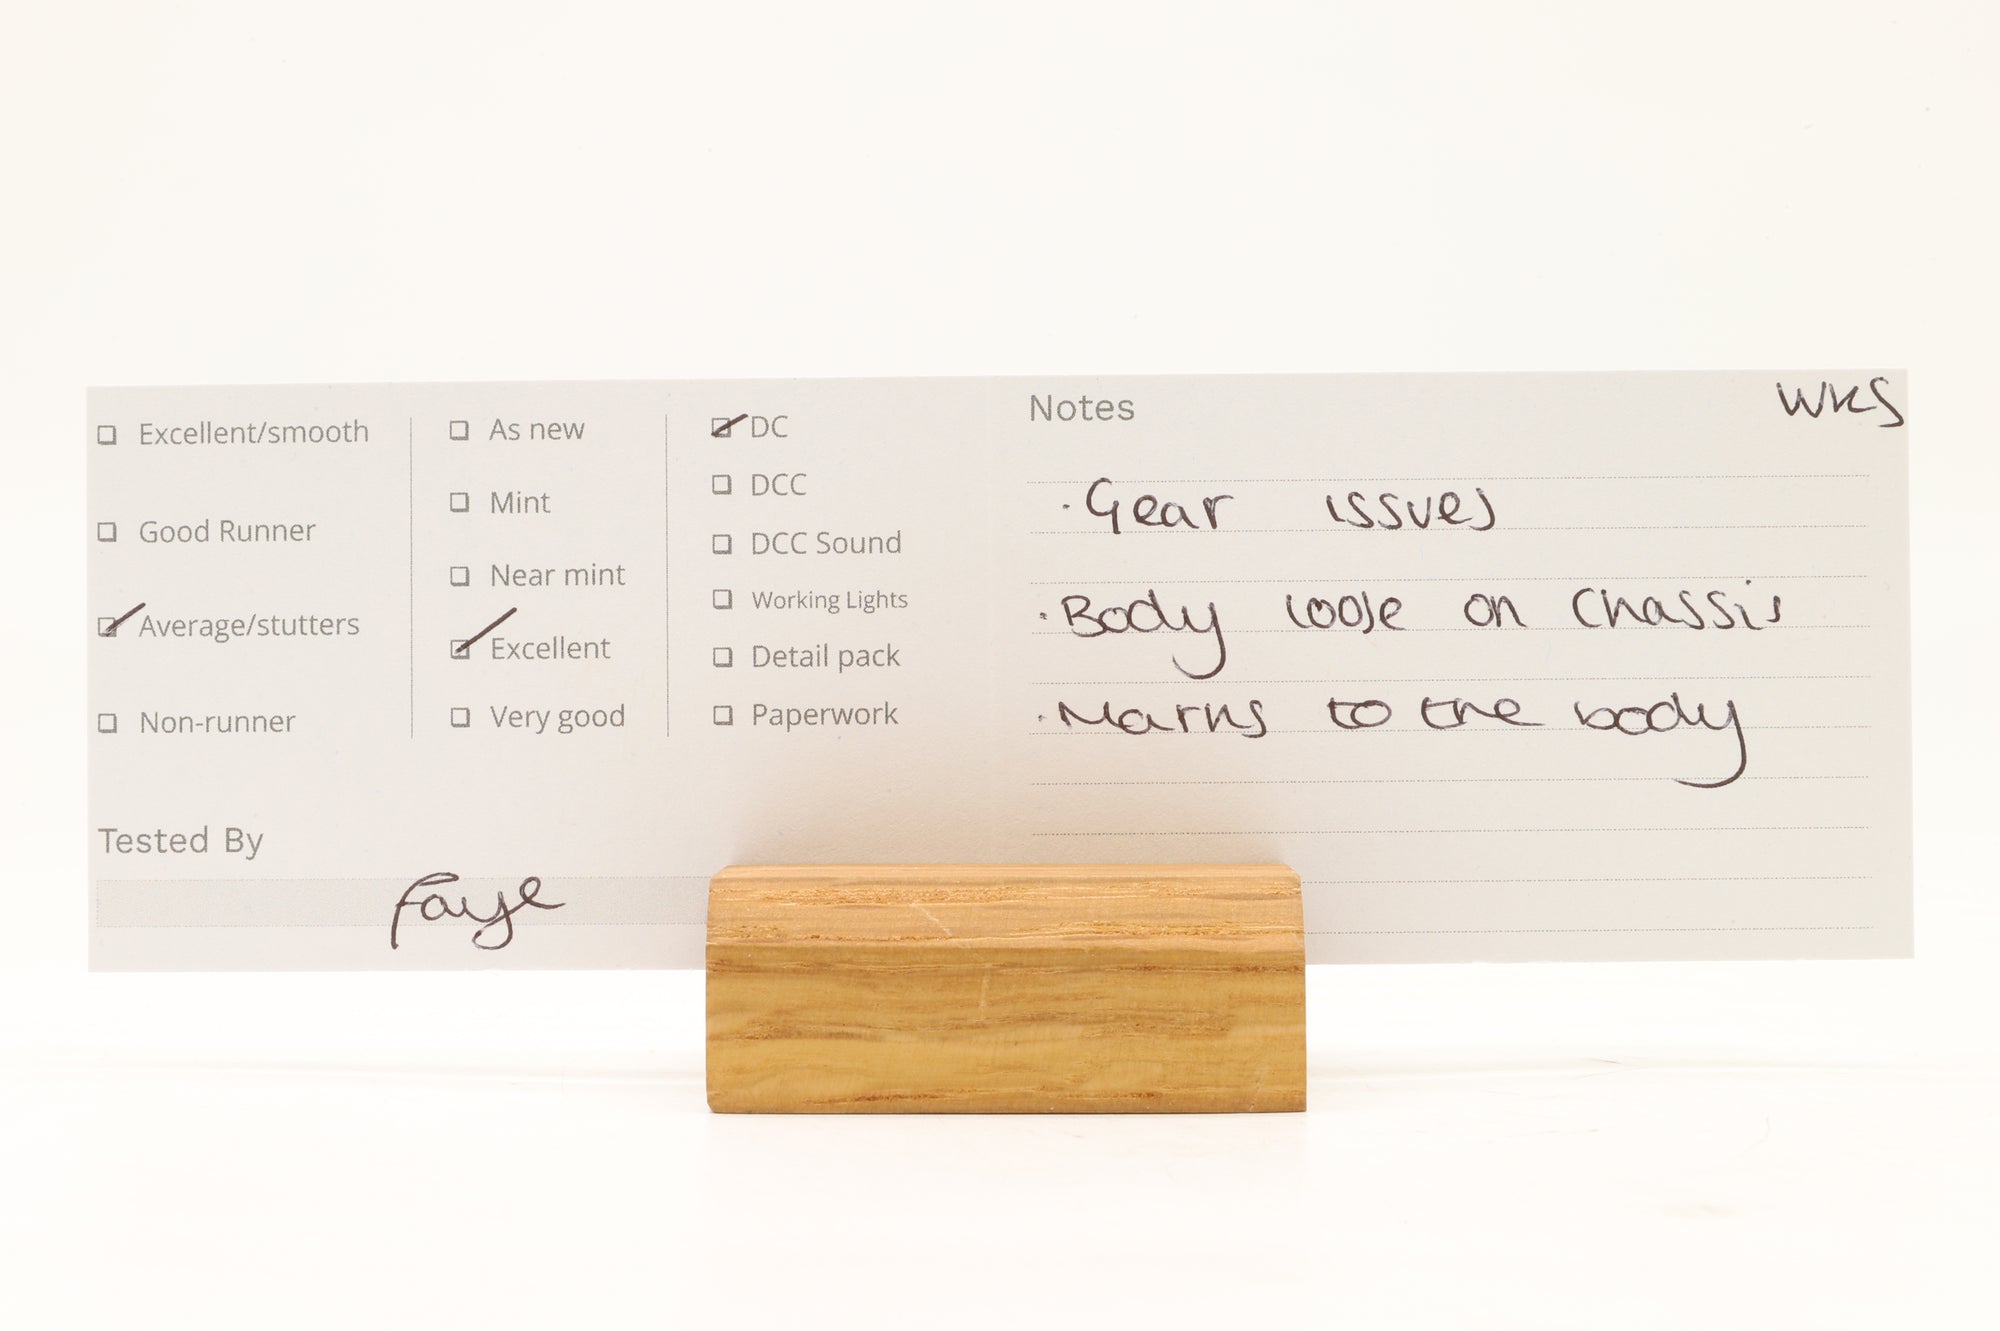 Excellent/smooth
Good Runner
Average/stutters
Non-runner
As new
Mint
Near mint
Excellent
Very good
DC
DCC
DCC Sound
Working Lights
Detail pack
Paperwork
Tested By
Faye
Notes
WKS
· Gear issues
· Body loose on Chassis
· Marks to the body